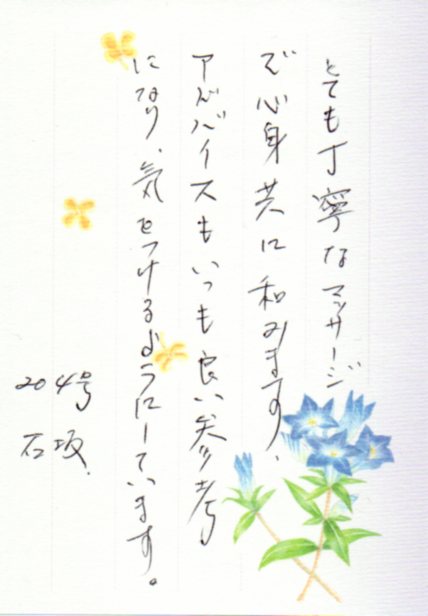 とても丁寧なマッサージ
で心身共に和みます、
アドバイスもいつも良い参考
になり、気をつけるようにしています。
204号
石坂.